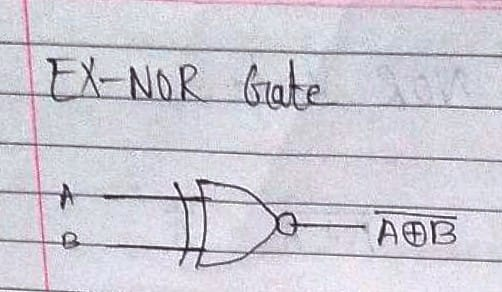 EX-NOR Gate
A
B
$\overline{A \oplus B}$